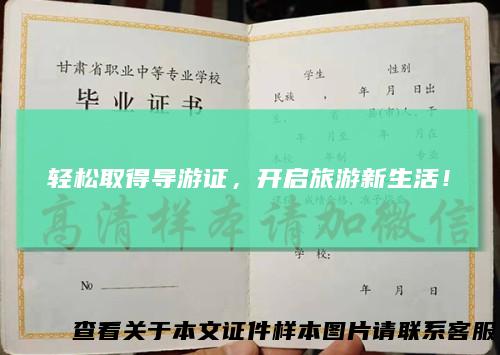 甘肃省职业中等专业学校
毕业证书
No
学生 性别
民族 , 年 月 日出
生, 省 县(市)人, 于
年 月至 年 月在
本校 年制 专业
学校:
年 月 日
轻松取得导游证,开启旅游新生活!
高清样本请加微信
查看关于本文证件样本图片请联系客服